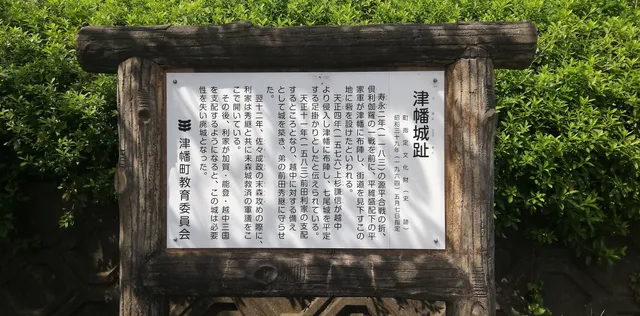 津幡城址
町指定文化財（史跡）
昭和三十九年（一九六四）五月七日指定
寿永二年（一一八三）の源平合戦の折、
倶利伽羅の一戦を前に、平維盛配下の平
家軍が津幡に布陣し、街道を見下すこの
地に砦を設けたといわれる。
天正四年（一五七六）上杉謙信が越中
より侵入し津幡に布陣し、七尾城を平定
する足掛かりとしたと伝えられている。
天正十一年（一五八三）前田利家の支配
するところとなり、越中に対する備え
として城を築き、弟の前田秀継に守らせ
た。
翌十二年、佐々成政の末森攻めの際に、
利家は秀継と共に末森城救済の軍議をこ
こで開いている。
その後、利家が加賀・能登・越中三国
を支配するようになると、この城は必要
性を失い廃城となった。
津幡町教育委員会